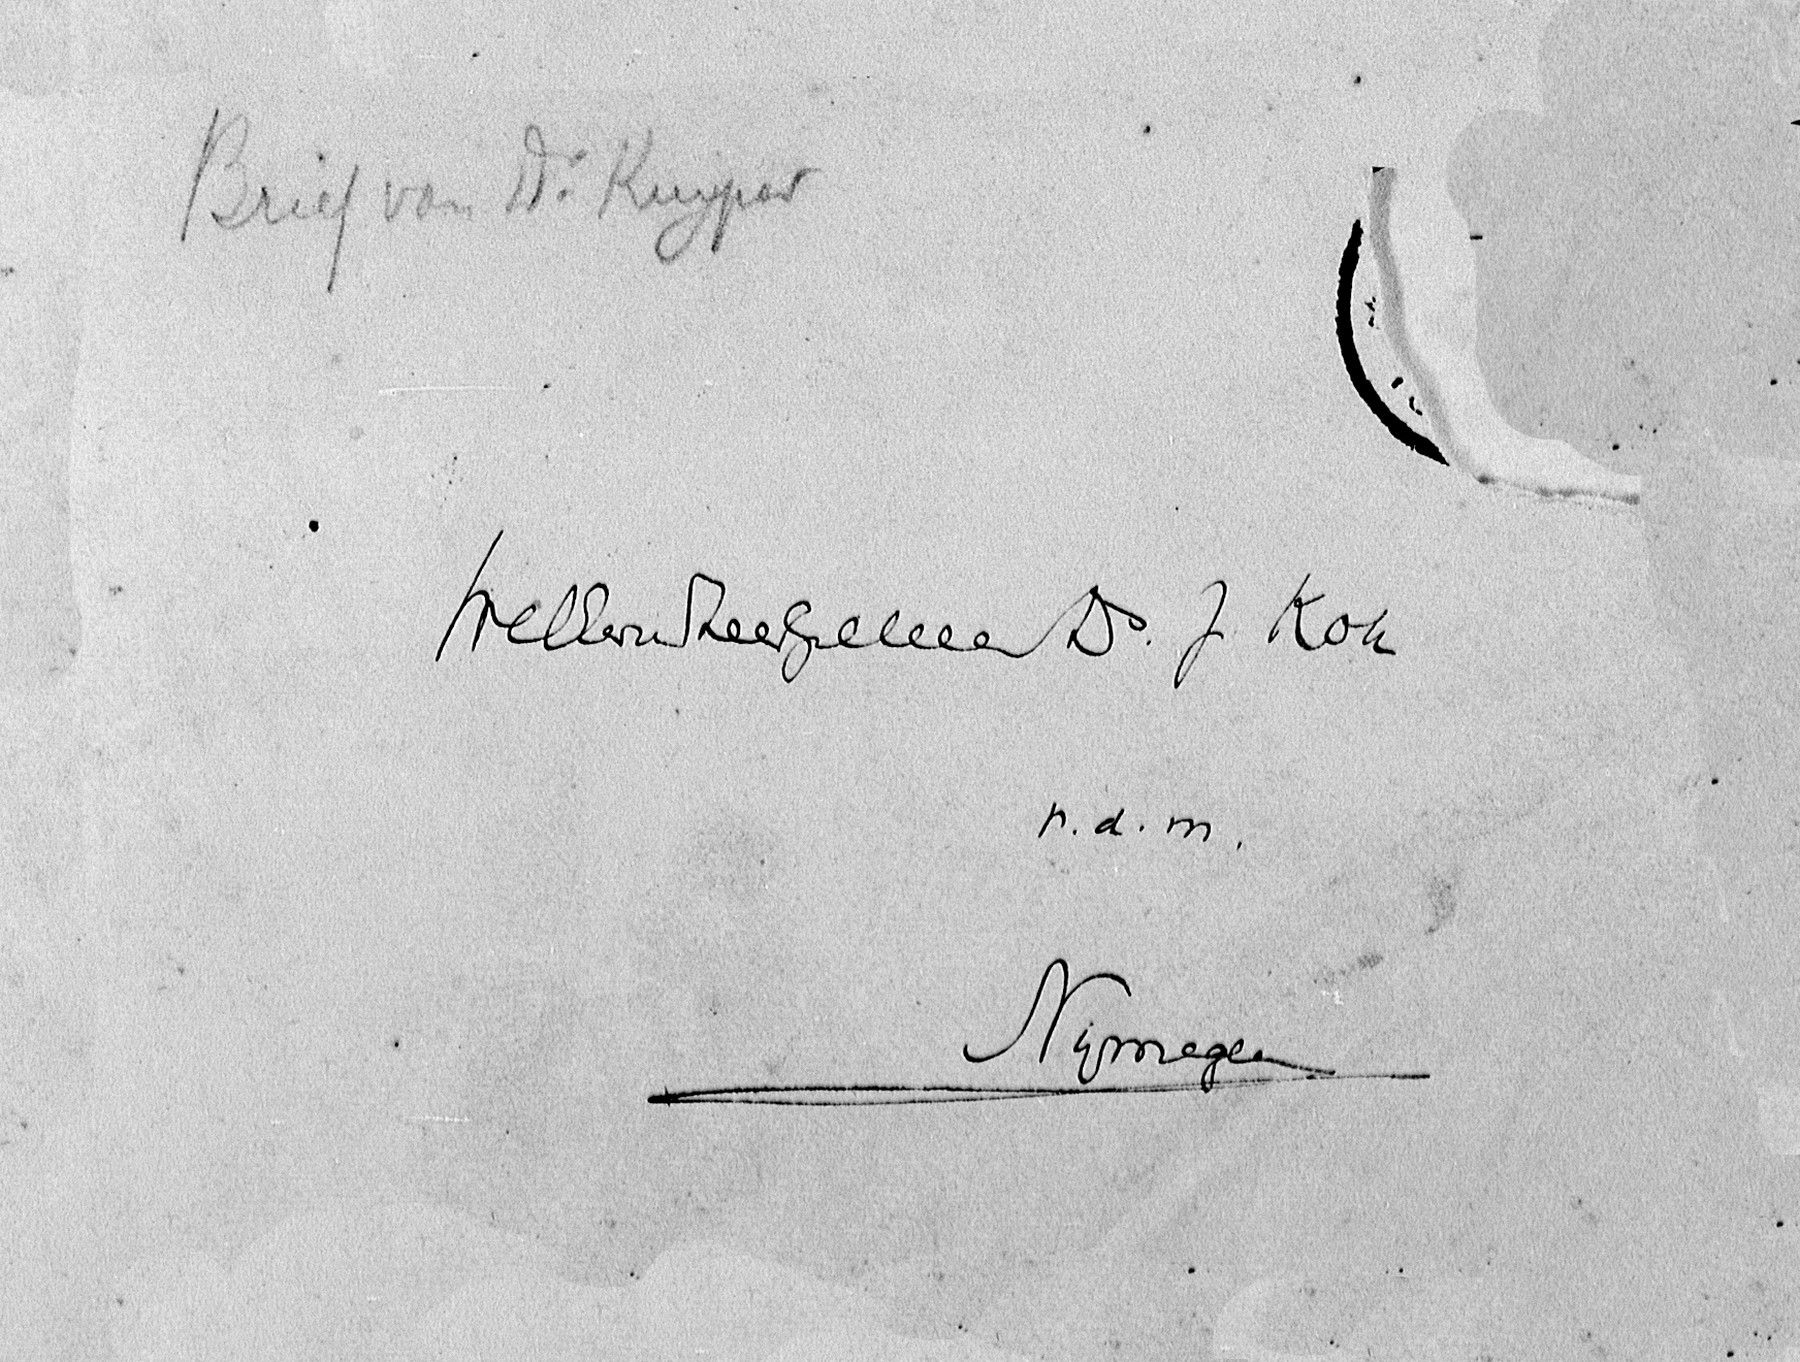 Brief van Dr. Kuyper
WelEerw. ZeerGeleerden Ds. J Kok
v.d.m.
Nijmegen